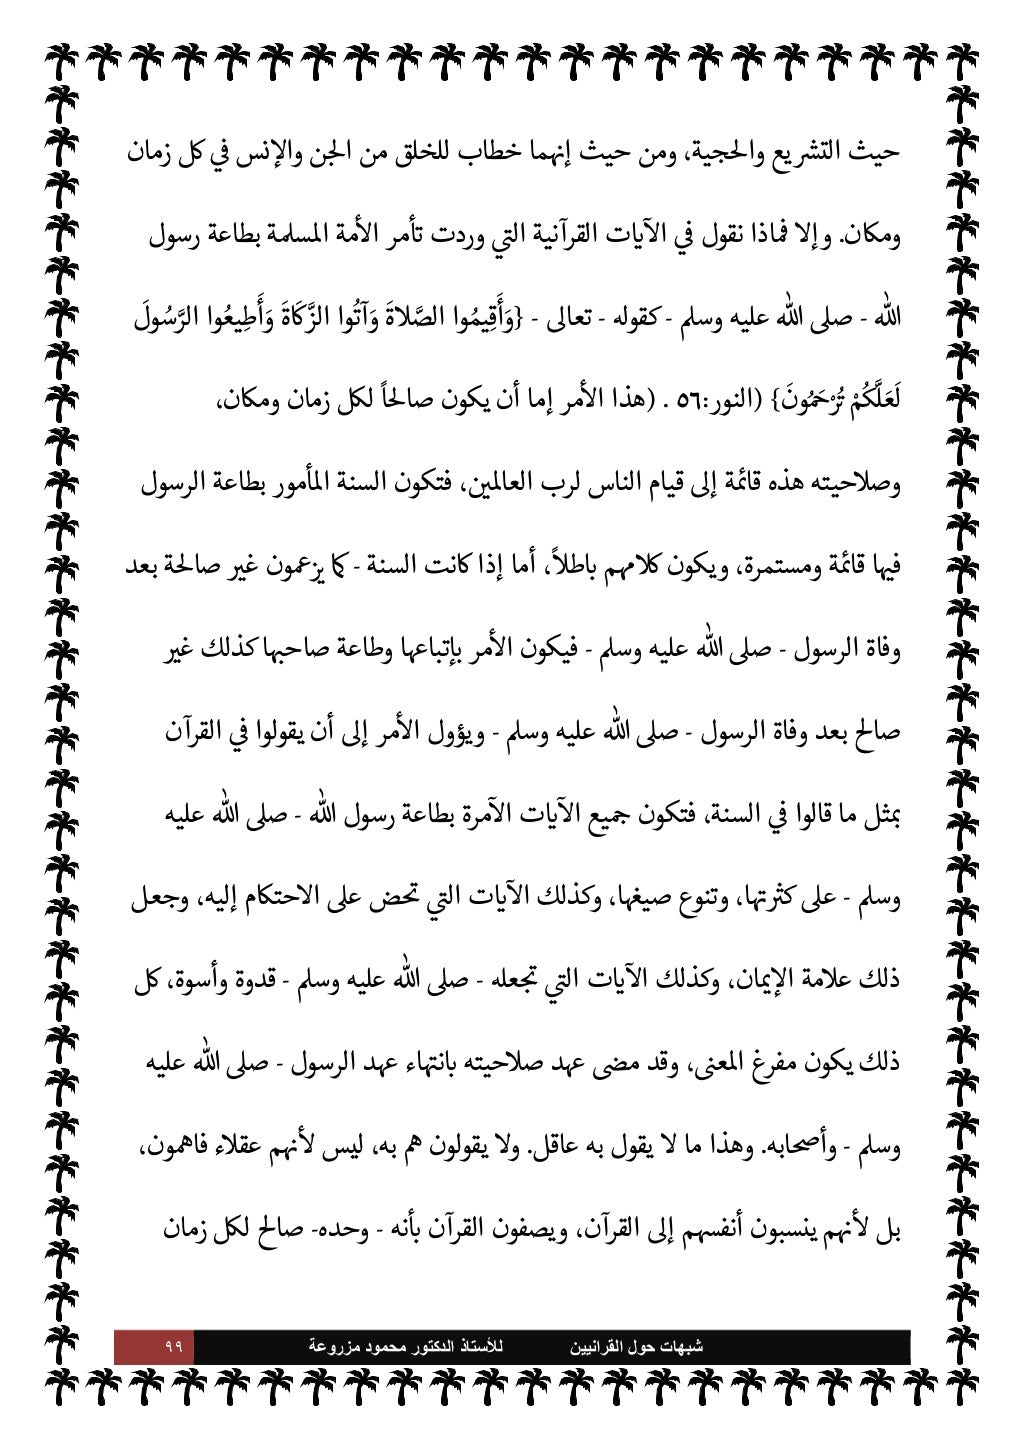 حيث التشريع والحجية، ومن حيث إنهما خطاب للخلق من الجن والإنس في كل زمان
ومكان. وإلا فماذا نقول في الآيات القرآنية التي وردت تأمر الأمة المسلمة بطاعة رسول
الله - صلى الله عليه وسلم - كقوله - تعالى - {وَأَقِيمُوا الصَّلاةَ وَآتُوا الزَّكَاةَ وَأَطِيعُوا الرَّسُولَ
لَعَلَّكُمْ تُرْحَمُونَ} (النور:٥٦ . (هذا الأمر إما أن يكون صالحاً لكل زمان ومكان،
وصلاحيته هذه قائمة إلى قيام الناس لرب العالمين، فتكون السنة المأمور بطاعة الرسول
فيها قائمة ومستمرة، ويكون كلامهم باطلاً، أما إذا كانت السنة - كما يزعمون غير صالحة بعد
وفاة الرسول - صلى الله عليه وسلم - فيكون الأمر بإتباعها وطاعة صاحبها كذلك غير
صالح بعد وفاة الرسول - صلى الله عليه وسلم - ويؤول الأمر إلى أن يقولوا في القرآن
بمثل ما قالوا في السنة، فتكون جميع الآيات الآمرة بطاعة رسول الله - صلى الله عليه
وسلم - على كثرتها، وتنوع صيغها، وكذلك الآيات التي تحض على الاحتكام إليه، وجعل
ذلك علامة الإيمان، وكذلك الآيات التي تجعله - صلى الله عليه وسلم - قدوة وأسوة، كل
ذلك يكون مفرغ المعنى، وقد مضى عهد صلاحيته بانتهاء عهد الرسول - صلى الله عليه
وسلم - وأصحابه. وهذا ما لا يقول به عاقل. ولا يقولون هم به، ليس لأنهم عقلاء فاهمون،
بل لأنهم ينسبون أنفسهم إلى القرآن، ويصفون القرآن بأنه - وحده- صالح لكل زمان
شبهات حول القرانيين للأستاذ الدكتور محمود مزروعة ٩٩